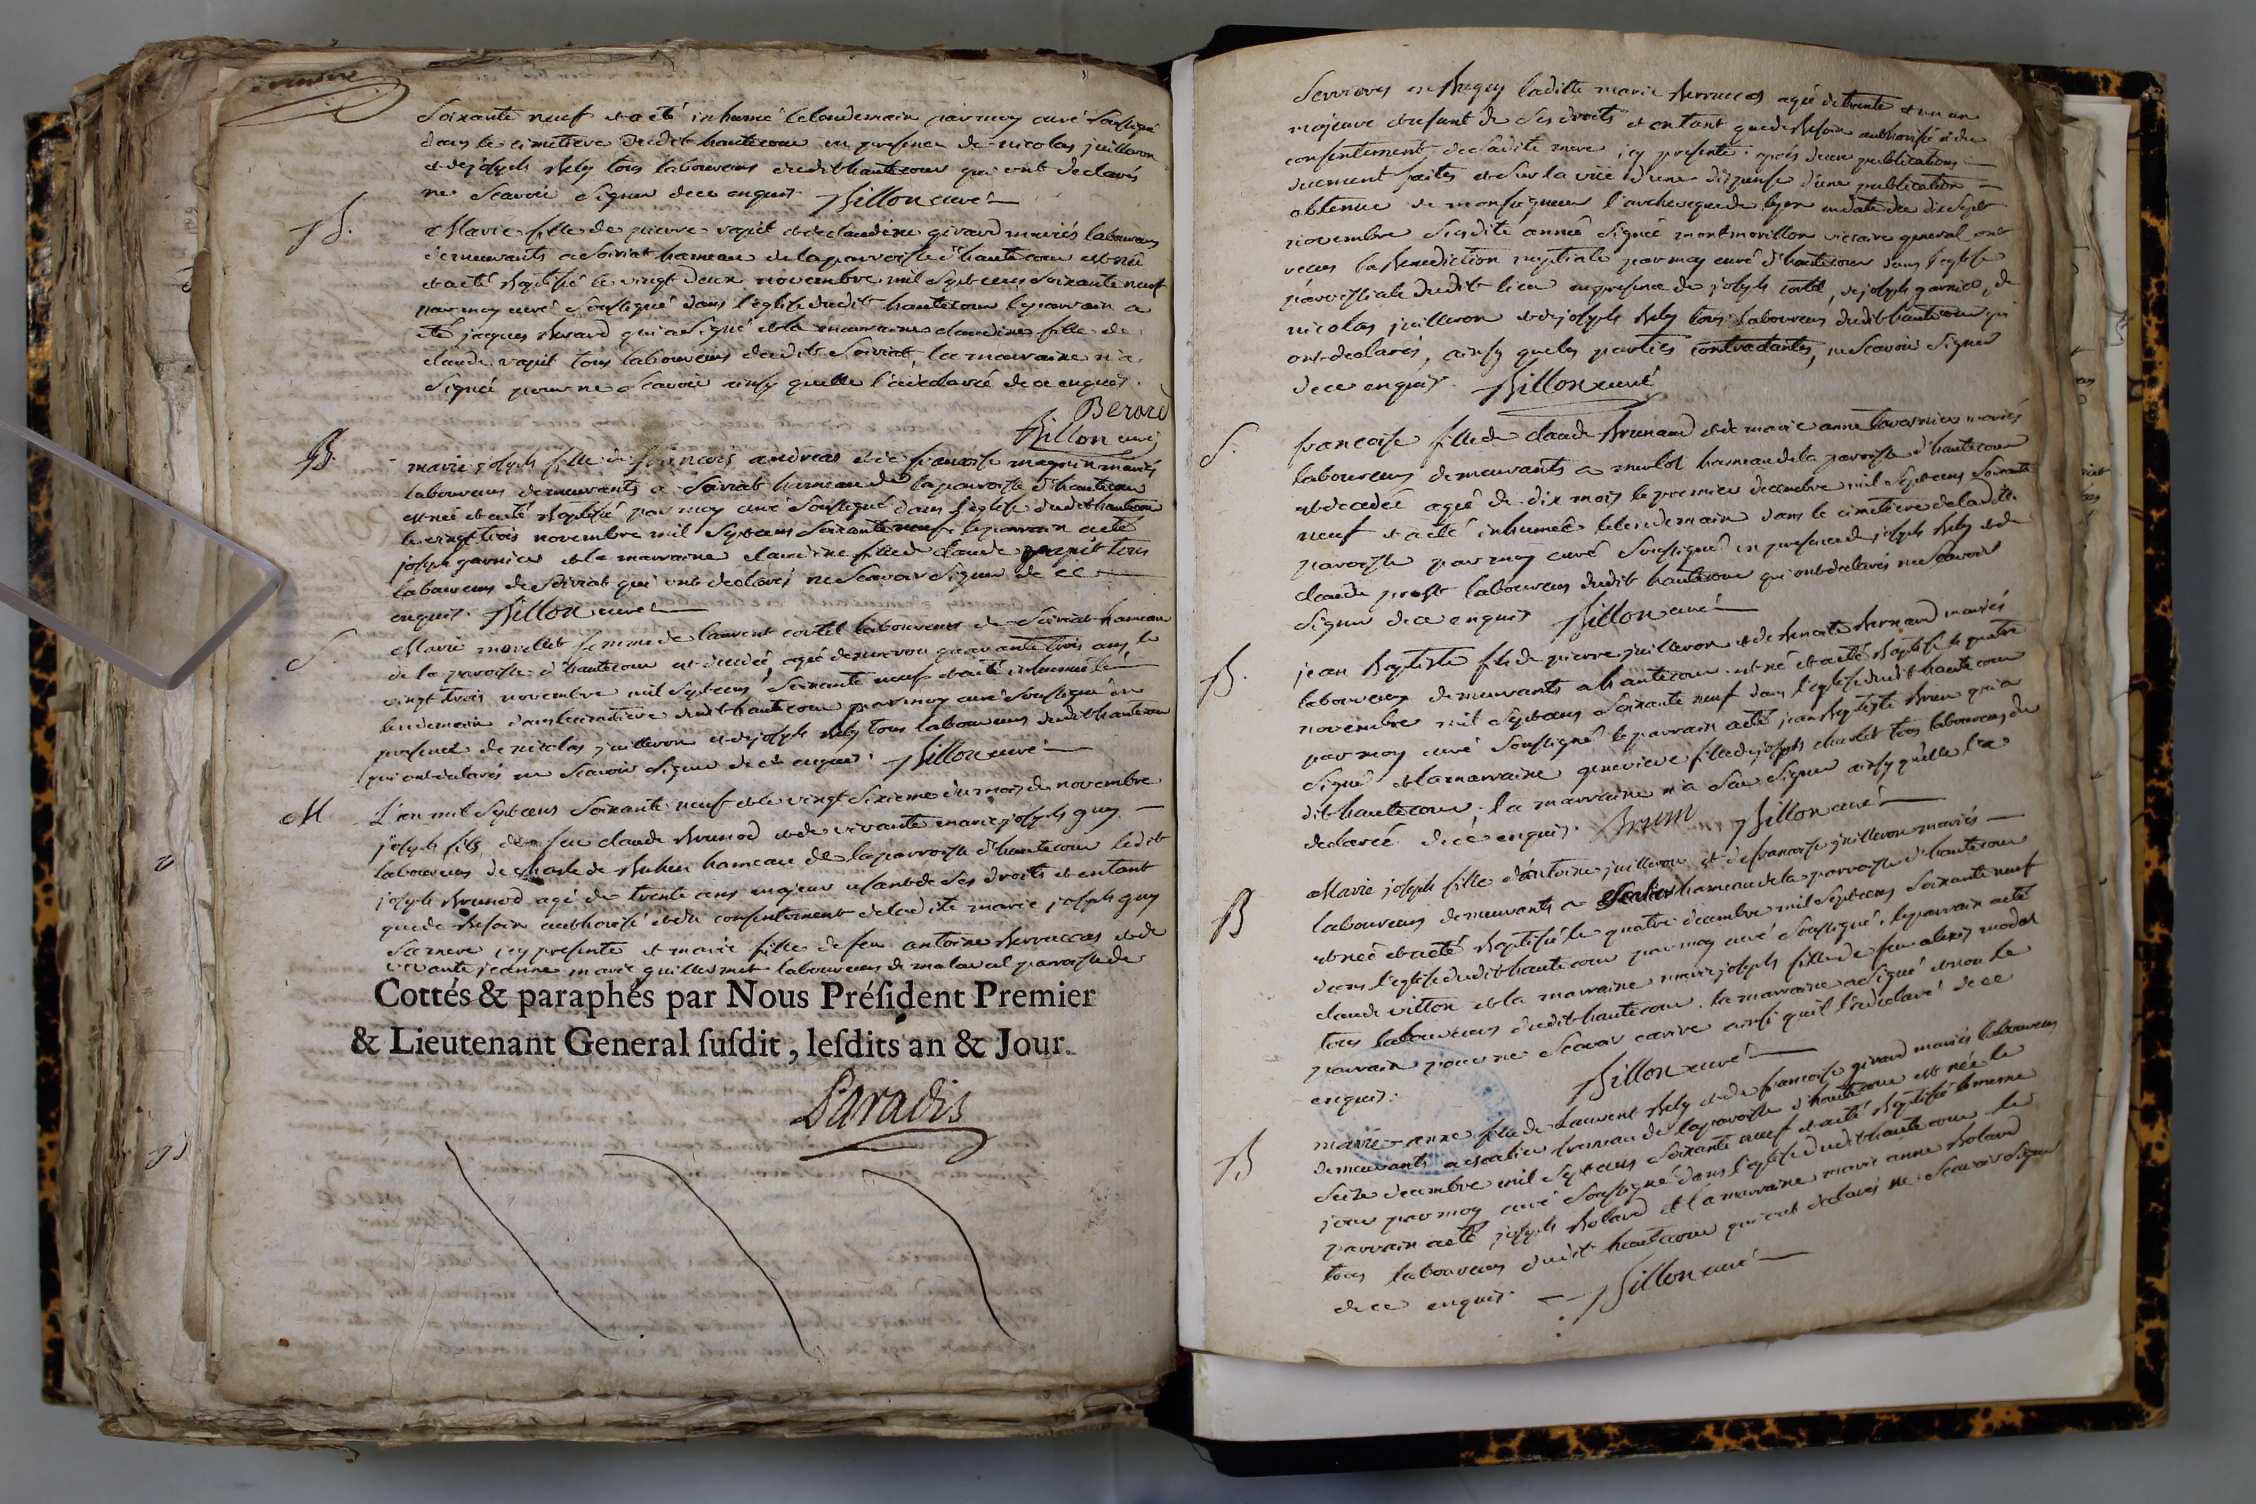 Soixante neuf et a été inhumé le lendemain par moy curé Soussigné
dans le cimetiere dudit hautecour en presence de nicolas juilleron
et de joseph Rely tous laboureurs dudit hautecour qui ont declarés
ne Scavoir Signer de ce enquis. Billon curé
B.
Marie fille de pierre vapit et de claudine girard mariés laboureurs
demeurants a Soiriat hameau de la parroisse d'hautecour est née
et a eté Baptisée le vingt deux novembre mil Sept cens Soixante neuf
par moy curé Soussigné dans l'eglise dudit hautecour le parrain a
eté jacques Berard qui a Signé et la marraine claudine fille de
claude vapit tous laboureurs dudit Soiriat la marraine n'a
Signée pour ne Scavoir ainsy quelle l'a declarée de ce enquis.
Berard
Billon curé
B.
marie joseph fille de francois andreas et de francoise magnin mariés
laboureurs demeurants a Soiriat hameau de la parroisse d'hautecour
est née et a eté Baptisée par moy curé Soussigné dans l'eglise dudit hautecour
le vingt trois novembre mil Sept cens Soixante neuf le parrain a eté
joseph garnier et la marraine claudine fille de claude vapit tous
laboureurs de Soiriat qui ont declarés ne Scavoir Signer de ce
enquis. Billon curé
S.
Marie morellet femme de laurent cortel laboureur de Soiriat hameau
de la parroisse d'hautecour est decedée agée d'environ quarante trois ans, le
vingt trois novembre mil Sept cens Soixante neuf et a eté inhumée le
lendemain dans le cimetiere dudit hautecour par moy curé Soussigné en
presence de nicolas juilleron et de joseph Rely tous laboureurs dudit hautecour
qui ont declarés ne Scavoir Signer de ce enquis. Billon curé
M
L'an mil Sept cens Soixante neuf et le vingt Sixieme du mois de novembre
joseph fils de feu claude Brunod et de vivante marie joseph guy
laboureurs de hameau de la parroisse d'hautecour ledit
joseph Brunod agé de trente ans majeur usant de Ses droits et en tant
que de Besoin authorisé et du consentement de ladite marie joseph guy
Sa mere icy presente et marie fille de feu antoine Berruccas et de
vivante jeanne marie guillermet laboureurs de malaval parroisse de
Cottés & paraphés par Nous Préſident Premier
& Lieutenant General ſuſdit, leſdits an & Jour.
Paradis
Serrieres en Bugey ladite marie Berruccas agée de trente et un an
majeure et usant de Ses droits et en tant que de Besoin authorisée et du
consentement de Sadite mere icy presente. apres deux publications
duement faites et Sur la vüe d'une dispense d'une publication
obtenue de monseigneur l'archeveque de lyon en date du dix Sept
novembre Susdite année Signée montmorillon vicaire general ont
recus la Benediction nuptiale par moy curé d'hautecour dans l'eglise
parroissiale dudit lieu en presence de joseph cortel, de joseph garnier, de
nicolas juilleron et de joseph Rely tous laboureurs dudit hautecour qui
ont declarés, ainsy que les parties contractantes, ne Scavoir Signer
de ce enquis. Billon curé
S.
francoise fille de claude Brunand et de marie anne tavernier mariés
laboureurs demeurants a merlot hameau de la parroisse d'hautecour
est decedée agée de dix mois le premier decembre mil Sept cens Soixante
neuf et a eté inhumée le lendemain dans le cimetiere de ladite
parroisse par moy curé Soussigné en presence de joseph Rely et de
claude prost laboureurs dudit hautecour qui ont declarés ne Scavoir
Signer de ce enquis Billon curé
B.
jean Baptiste fils de pierre juilleron et de Benoite Bernard mariés
laboureurs demeurants a hautecour est né et a eté Baptisé le quatre
novembre mil Sept cens Soixante neuf dans l'eglise dudit hautecour
par moy curé Soussigné le parrain a eté jean Baptiste Brun qui a
Signé et la marraine genevieve fille de joseph chanlet tous laboureurs du
dit hautecour. la marraine n'a Seu Signer ainsy qu'elle l'a
declarée de ce enquis. Brun Billon curé
B
Marie joseph fille d'antoine juilleron et de francoise juilleron mariés
laboureurs demeurants a hameau de la parroisse d'hautecour
est née et a eté Baptisée le quatre decembre mil Sept cens Soixante neuf
dans l'eglise dudit hautecour par moy curé Soussigné, le parrain a eté
claude vitton et la marraine marie joseph fille de feu alexis modat
tous laboureurs dudit hautecour. la marraine a Signé et non le
parrain pour ne Scavoir ecrire ainsi qu'il l'a declaré de ce
enquis. Billon curé
B
marie-anne fille de laurent Rely et de francoise girard mariés laboureurs
demeurants a escalier hameau de la parroisse d'hautecour est née le
Seize decembre mil Sept cens Soixante neuf et a eté Baptisée le meme
jour par moy curé Soussigné dans l'eglise dudit hautecour le
parrain a eté joseph Bolard et la marraine marie anne Bolard
tous laboureurs dudit hautecour qui ont declarés ne Scavoir Signer
de ce enquis. Billon curé